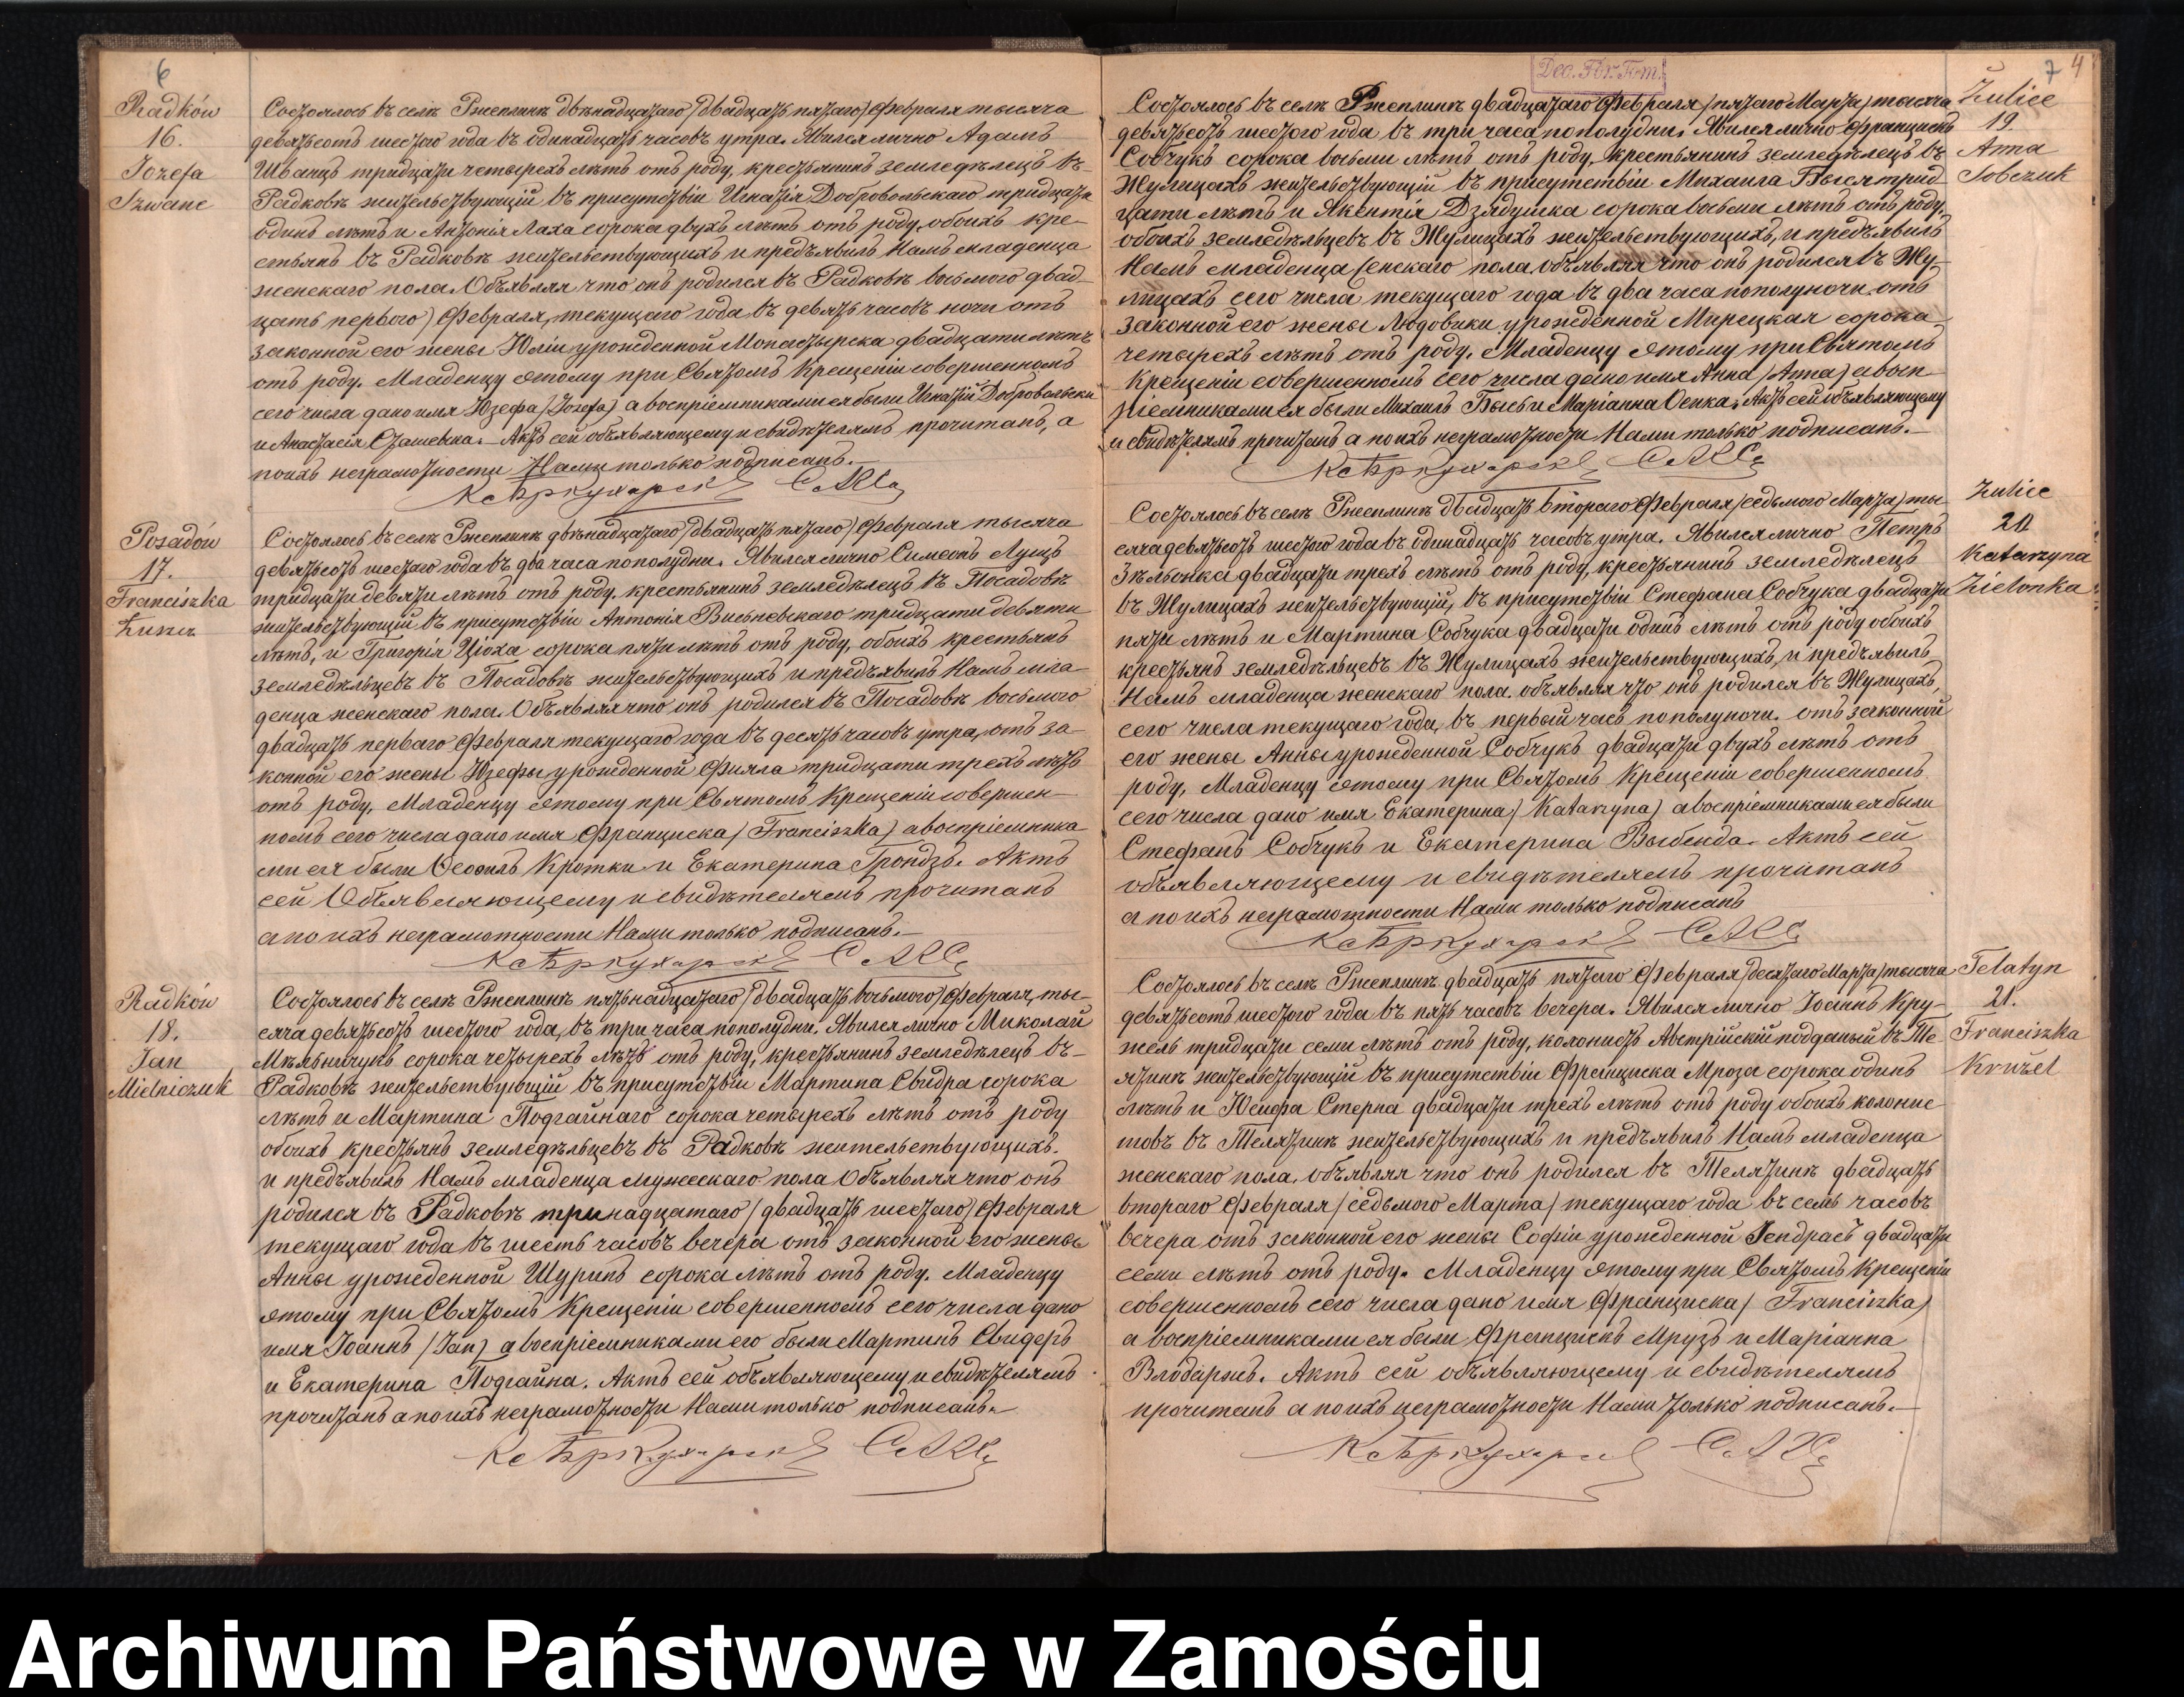 6
Radków
16.
Jozefa
Szwanc
Состоялось въ селѣ Ржеплинѣ двѣнадцатаго (двадцать пятаго) Февраля тысяча
девятьсотъ шестого года въ одинадцать часовъ утра. Явился лично Адамъ
Шванцъ тридцати четырехъ лѣтъ отъ роду, крестьянинъ земледѣлецъ въ
Радковѣ жительствующій въ присутствіи Игнатія Добровольскаго тридцати
одинъ лѣтъ и Антонія Лаха сорока двухъ лѣтъ отъ роду, обоихъ кре-
стьянъ въ Радковѣ жительствующихъ и предъявилъ Намъ младенца
женскаго пола. Объявляя что онъ родился въ Радковѣ восьмого двад-
цать перваго) Февраля, текущаго года въ девять часовъ ночи отъ
законной его жены Юліи урожденной Монастырска двадцати лѣтъ
отъ роду. Младенцу этому при Святомъ Крещеніи совершенномъ
сего числа дано имя Юзефа (Jozefa) а воспріемниками ея были Игнатій Добровольски
и Анастасія Сташевска. Актъ сей объявляющему и свидѣтелямъ прочитанъ, а
поихъ неграмотности Нами только подписанъ.
Posadów
17.
Franciszka
Łuszcz
Состоялось въ селѣ Ржеплинѣ двѣнадцатаго (двадцать пятаго) Февраля тысяча
девятьсотъ шестаго года въ два часа пополудни. Явился лично Симеонъ Лущъ
тридцати девяти лѣтъ отъ роду, крестьянинъ земледѣлецъ въ Посадовѣ
жительствующій въ присутствіи Антонія Висьневскаго тридцати девяти
лѣтъ, и Григорія Ціоха сорока пяти лѣтъ отъ роду, обоихъ крестьянъ
земледѣльцевъ въ Посадовѣ жительствующихъ и предъявилъ Намъ мла-
денца женскаго пола. Объявляя что онъ родился въ Посадовѣ восьмого
двадцать перваго Февраля текущаго года въ десять часовъ утра, отъ за-
конной его жены Юзефы урожденной Фияла тридцати трехъ лѣтъ
отъ роду. Младенцу этому при Святомъ Крещеніи совершен-
номъ сего числа дано имя Франциска (Franciszka) а воспріемника
ми ея были Ѳеофилъ Кротки и Екатерина Грондзь. Актъ
сей Объявляющему и свидѣтелямъ прочитанъ
а по ихъ неграмотности Нами только подписанъ.
Radków
18.
Jan
Mielniczuk
Состоялось въ селѣ Ржеплинѣ пятьнадцатаго (двадцать восьмого) Февраля, ты-
сяча девятьсотъ шестого года, въ три часа пополудни. Явился лично Миколай
Мѣльничукъ сорока четырехъ лѣтъ отъ роду, крестьянинъ земледѣлецъ въ
Радковѣ жительствующій въ присутствіи Мартина Свидра сорока
лѣтъ и Мартина Подгайнаго сорока четырехъ лѣтъ отъ роду
обоихъ крестьянъ земледѣльцевъ въ Радковѣ жительствующихъ.
и предъявилъ Намъ младенца мужескаго пола Объявляя что онъ
родился въ Радковѣ тринадцатаго (двадцать шестаго) Февраля
текущаго года въ шесть часовъ вечера отъ законной его жены
Анны урожденной Щуринъ сорока лѣтъ отъ роду. Младенцу
этому при Святомъ Крещеніи совершенномъ сего числа дано
имя Іоаннъ (Jan) а воспріемниками его были Мартинъ Свидеръ
и Екатерина Подгайна. Актъ сей объявляющему и свидѣтелямъ
прочитанъ а по ихъ неграмотности Нами только подписанъ.
7 4
Żulice
19.
Anna
Sobczuk
Состоялось въ селѣ Ржеплинѣ двадцатаго Февраля (пятаго Марта) тысяча
девятьсотъ шестого года въ три часа пополудни. Явился лично Францискъ
Собчукъ сорока восьми лѣтъ отъ роду крестьянинъ земледѣлецъ въ
Жулицахъ жительствующій въ присутствіи Михаила Выся трид-
цати лѣтъ и Якентія Дзядушка сорока восьми лѣтъ отъ роду,
обоихъ земледѣльцевъ въ Жулицахъ жительствующихъ, и предъявилъ
Намъ младенца сенскаго пола объявляя что онъ родился въ Жу-
лицахъ сего числа текущаго года въ два часа пополуночи отъ
законной его жены Людовики урожденной Мирецкая сорока
четырехъ лѣтъ отъ роду. Младенцу этому при Святомъ
Крещеніи совершенномъ сего числа дано имя Анна (Anna) а восп-
ріемниками ея были Михаилъ Высь и Маріанна Осика. Актъ сей объявляющему
и свидѣтелямъ прочитанъ а по ихъ неграмотности Нами только подписанъ.
Żulice
20
Katarzyna
Zielonka
Состоялось въ селѣ Ржеплинѣ двадцать второго Февраля (седьмого Марта) ты-
сяча девятьсотъ шестого года въ одинадцать часовъ утра. Явился лично Петръ
Зѣльонка двадцати трехъ лѣтъ отъ роду, крестьянинъ земледѣлецъ
въ Жулицахъ жительствующій, въ присутствіи Стефана Собчука двадцати
пяти лѣтъ и Мартина Собчука двадцати одинъ лѣтъ отъ роду обоихъ
крестьянъ земледѣльцевъ въ Жулицахъ жительствующихъ, и предъявилъ
Намъ младенца женскаго пола объявляя что онъ родился въ Жулицахъ,
сего числа текущаго года, въ первый часъ пополуночи отъ законной
его жены Анны урожденной Собчукъ двадцати двухъ лѣтъ отъ
роду, Младенцу этому при Святомъ Крещеніи совершенномъ
сего числа дано имя Екатерина (Katarzyna) а воспріемниками ея были
Стефанъ Собчукъ и Екатерина Выбенда. Актъ сей
объявляющему и свидѣтелямъ прочитанъ
а по ихъ неграмотности Нами только подписанъ
Telatyn
21.
Franciszka
Krużel
Состоялось въ селѣ Ржеплинѣ двадцать пятаго Февраля (десятаго Марта) тысяча
девятьсотъ шестого года въ пять часовъ вечера. Явился лично Іоаннъ Кру-
жель тридцати семи лѣтъ отъ роду, колонистъ Австрійскій подданый въ Те
лятинѣ жительствующій въ присутствіи Франциска Мроза сорока одинъ
лѣтъ и Юзефа Стерна двадцати трехъ лѣтъ отъ роду обоихъ колонис
товъ въ Телятинѣ жительствующихъ и предъявилъ Намъ младенца
женскаго пола, объявляя что онъ родился въ Телятинѣ двадцать
второго Февраля (седьмого Марта) текущаго года въ семь часовъ
вечера отъ законной его жены Софіи урожденной Гендрасъ двадцати
семи лѣтъ отъ роду. Младенцу этому при Святомъ Крещеніи
совершенномъ сего числа дано имя Франциска (Franciszka)
а воспріемниками ея были Францискъ Мрузъ и Маріанна
Влодаржъ. Актъ сей объявляющему и свидѣтелямъ
прочитанъ а по ихъ неграмотности Нами только подписанъ.
Archiwum Państwowe w Zamościu